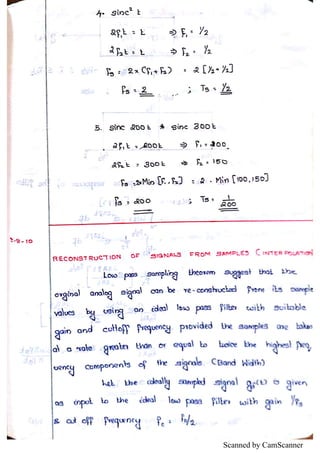 4. sinc² t
2f₁t = t ⇒ f₁ = 1/2
2f₂t = t ⇒ f₂ = 1/2
fs = 2 × (f₁ + f₂) = 2 [1/2 + 1/2]
fs = 2 ; Ts = 1/2
5. sinc 200t * sinc 300t
2f₁t = 200t ⇒ f₁ = 100
2f₂t = 300t ⇒ f₂ = 150
fs = 2 Min [f₁, f₂] = 2 . Min [100, 150]
fs = 200 ; Ts = 1/200
RECONSTRUCTION OF SIGNALS FROM SAMPLES (INTERPOLATION)
Low pass sampling theorem suggest that the
orginal analog signal can be re-constructed from its sample
values by using an ideal low pass filter with suitable
gain and cutoff frequency provided the samples are taken
at a rate greater than or equal to twice the highest freq
uency components of the signals (Band Width)
Let the ideally sampled signal (t) is given
as input to the ideal low pass filter with gain 1/fs
& cut off frequency fc = fs/2
Scanned by CamScanner